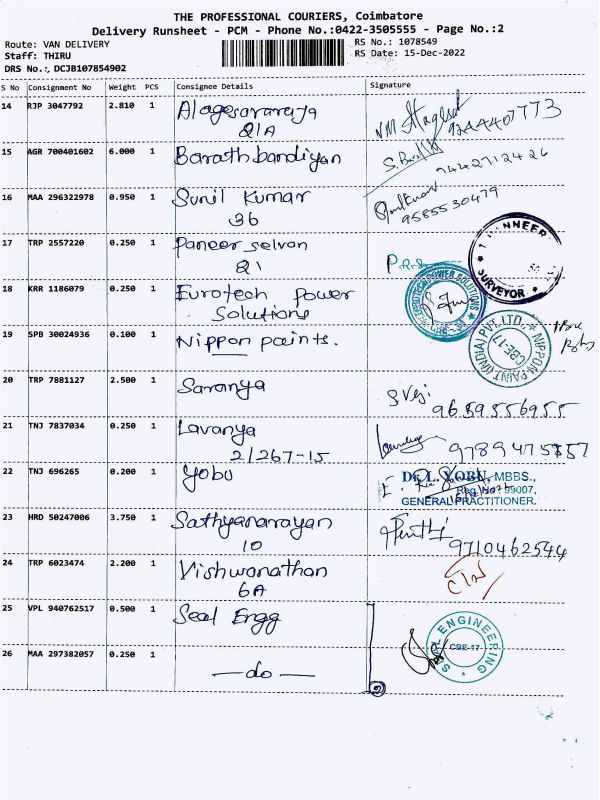 THE PROFESSIONAL COURIERS, Coimbatore
Delivery Runsheet - PCM - Phone No.:0422-3505555 - Page No.:2
Route: VAN DELIVERY
RS No.: 1078549
Staff: THIRU
RS Date: 15-Dec-2022
DRS No.:, DCJB107854902
S No Consignment No Weight PCS Consignee Details Signature
14 RJP 3047792 2.810 1 Alagesavaraja
21A
9244407773
15 AGR 700401602 6.000 1 Barathbandiyan
7442712426
16 MAA 296322978 0.950 1 Sunil Kumar
36
9585530479
17 TRP 2557220 0.250 1 Paneer selvan
21
SURVEYOR
18 KRR 1186079 0.250 1 Eurotech Power
Solutions
EUROTECH POWER SOLUTIONS
CBE-
19 SPB 30024936 0.100 1 Nippon paints.
NIPPON PAINT (INDIA) PVT. LTD.,
CBE-17
20 TRP 7881127 2.500 1 Saranya
9659556955
21 TNJ 7837034 0.250 1 Lavanya
2/267-15
9789475757
22 TNJ 696265 0.200 1 Yobu
Dr. L. YOBU, MBBS.,
Reg. No: 99007,
GENERAL PRACTITIONER.
23 HRD 50247006 3.750 1 Sathyanarayan
10
9710462544
24 TRP 6023474 2.200 1 Vishwanathan
6A
25 VPL 940762517 0.500 1 Seal Engg
SEAL ENGINEERING
CBE-17
26 MAA 297382057 0.250 1 —do—